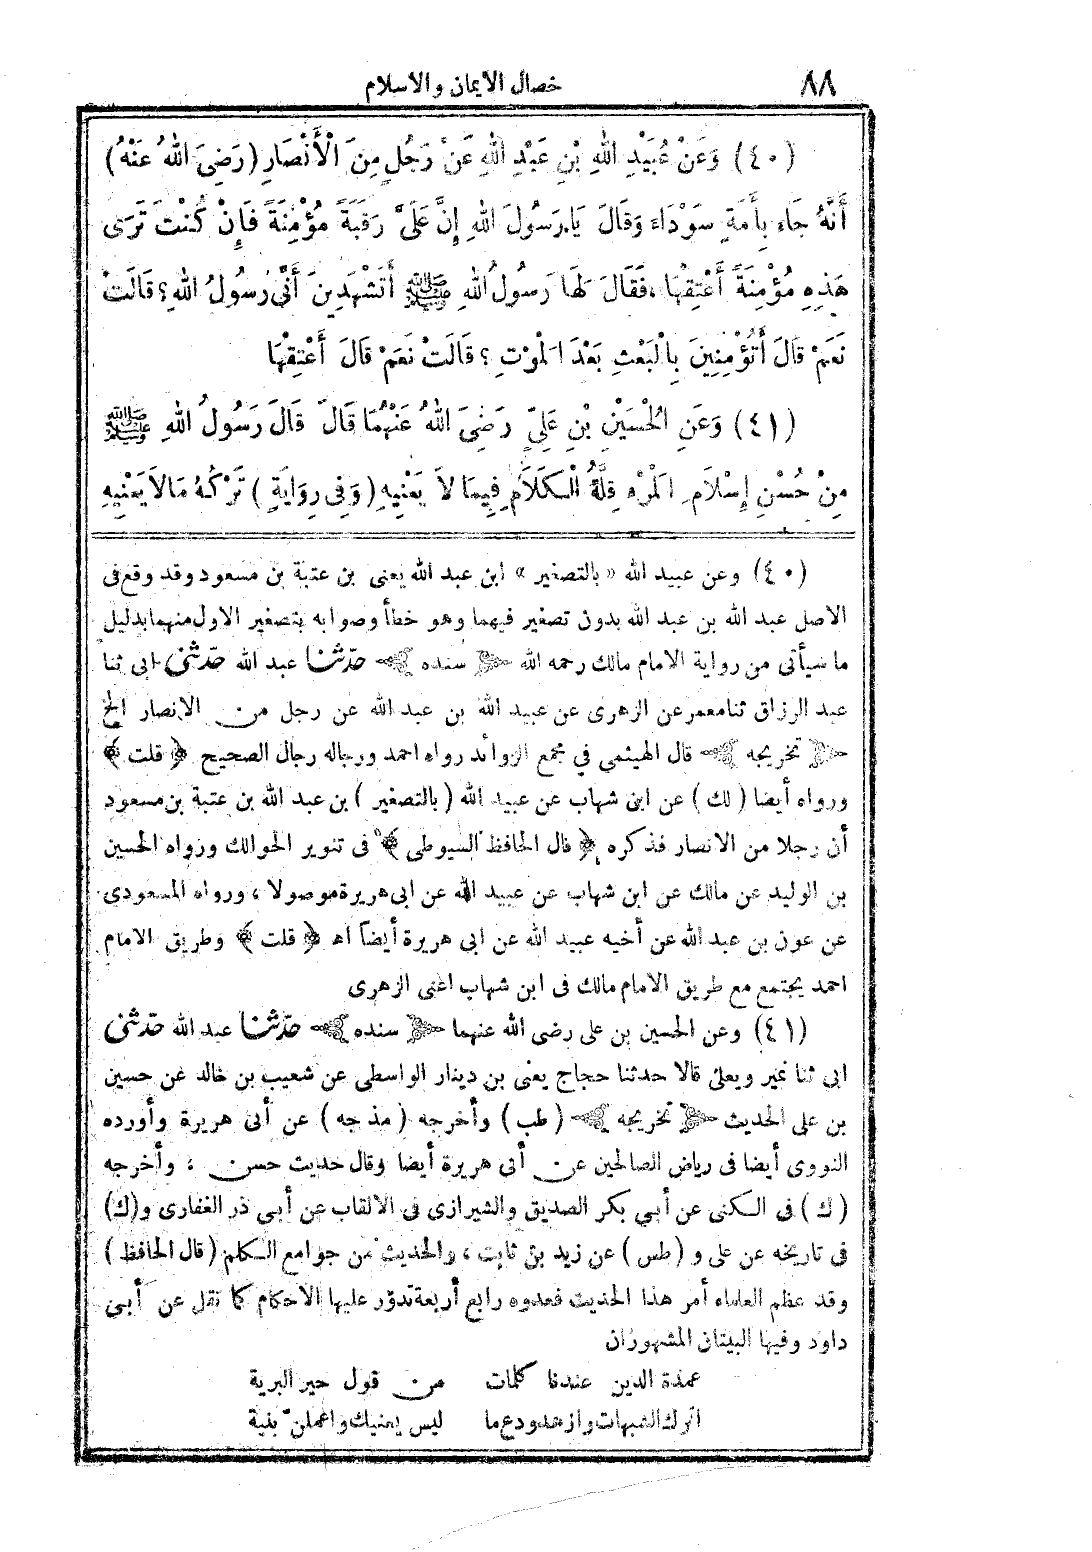 ٨٨
خصال الايمان والاسلام
(٤٠) وَعَنْ عُبَيْدِ اللهِ بْنِ عَبْدِ اللهِ عَنْ رَجُلٍ مِنَ الْأَنْصَارِ (رَضِىَ اللهُ عَنْهُ)
أَنَّهُ جَاءَ بِأَمَةٍ سَوْدَاءَ وَقَالَ يَا رَسُولَ اللهِ إِنَّ عَلَىَّ رَقَبَةً مُؤْمِنَةً فَإِنْ كُنْتَ تَرَى
هَذِهِ مُؤْمِنَةً أَعْتِقُهَا، فَقَالَ لَهَا رَسُولُ اللهِ ﷺ أَتَشْهَدِينَ أَنِّى رَسُولُ اللهِ؟ قَالَتْ
نَعَمْ قَالَ أَتُؤْمِنِينَ بِالْبَعْثِ بَعْدَ الْمَوْتِ؟ قَالَتْ نَعَمْ قَالَ أَعْتِقْهَا
(٤١) وَعَنِ الْحُسَيْنِ بْنِ عَلِىٍّ رَضِىَ اللهُ عَنْهُمَا قَالَ قَالَ رَسُولُ اللهِ ﷺ
مِنْ حُسْنِ إِسْلَامِ الْمَرْءِ قِلَّةُ الْكَلَامِ فِيمَا لاَ يَعْنِيهِ (وَفِى رِوَايَةٍ) تَرْكُهُ مَالاَ يَعْنِيهِ
(٤٠) وعن عبيد الله «بالتصغير» ابن عبد الله يعنى بن عتبة بن مسعود وقد وقع فى
الاصل عبد الله بن عبد الله بدون تصغير فيهما وهو خطأ وصوابه بتصغير الاول منهما بدليل
ما سيأتى من رواية الامام مالك رحمه الله ﴿سنده﴾ حدّثنا عبد الله حدّثنى ابى ثنا
عبد الرزاق ثنا معمر عن الزهرى عن عبيد الله بن عبد الله عن رجل من الانصار الخ
﴿تخريجه﴾ قال الهيثمى في مجمع الزوائد رواه احمد ورجاله رجال الصحيح ﴿قلت﴾
ورواه أيضا (لك) عن ابن شهاب عن عبيد الله (بالتصغير) بن عبد الله بن عتبة بن مسعود
أن رجلا من الانصار فذكره ﴿قال الحافظ السيوطى﴾ فى تنوير الحوالك ورواه الحسين
بن الوليد عن مالك عن ابن شهاب عن عبيد الله عن ابى هريرة موصولا، ورواه المسعودى
عن عون بن عبد الله عن أخيه عبيد الله عن ابى هريرة أيضاً اه ﴿قلت﴾ وطريق الامام
احمد يجتمع مع طريق الامام مالك فى ابن شهاب اعنى الزهرى
(٤١) وعن الحسين بن على رضى الله عنهما ﴿سنده﴾ حدّثنا عبد الله حدّثنى
ابى ثنا نمير ويعلى قالا حدثنا حجاج يعنى بن دينار الواسطى عن شعيب بن خالد عن حسين
بن على الحديث ﴿تخريجه﴾ (طب) وأخرجه (مذ جه) عن أبى هريرة وأورده
النووى أيضا فى رياض الصالحين عن أبى هريرة أيضا وقال حديث حسن، وأخرجه
(ك) فى الكنى عن أبي بكر الصديق والشيرازى فى الالقاب عن أبي ذر الغفارى و(ك)
فى تاريخه عن على و (طس) عن زيد بن ثابت، والحديث من جوامع الكلم (قال الحافظ)
وقد عظم العلماء أمر هذا الحديث فعدوه رابع أربعة تدوّر عليها الاحكام كما نقل عن أبى
داود وفيها البيتان المشهوران
عمدة الدين عندنا كلمات من قول خير البرية
اترك الشبهات وازهد ودع ما ليس يعنيك واعملن بنية